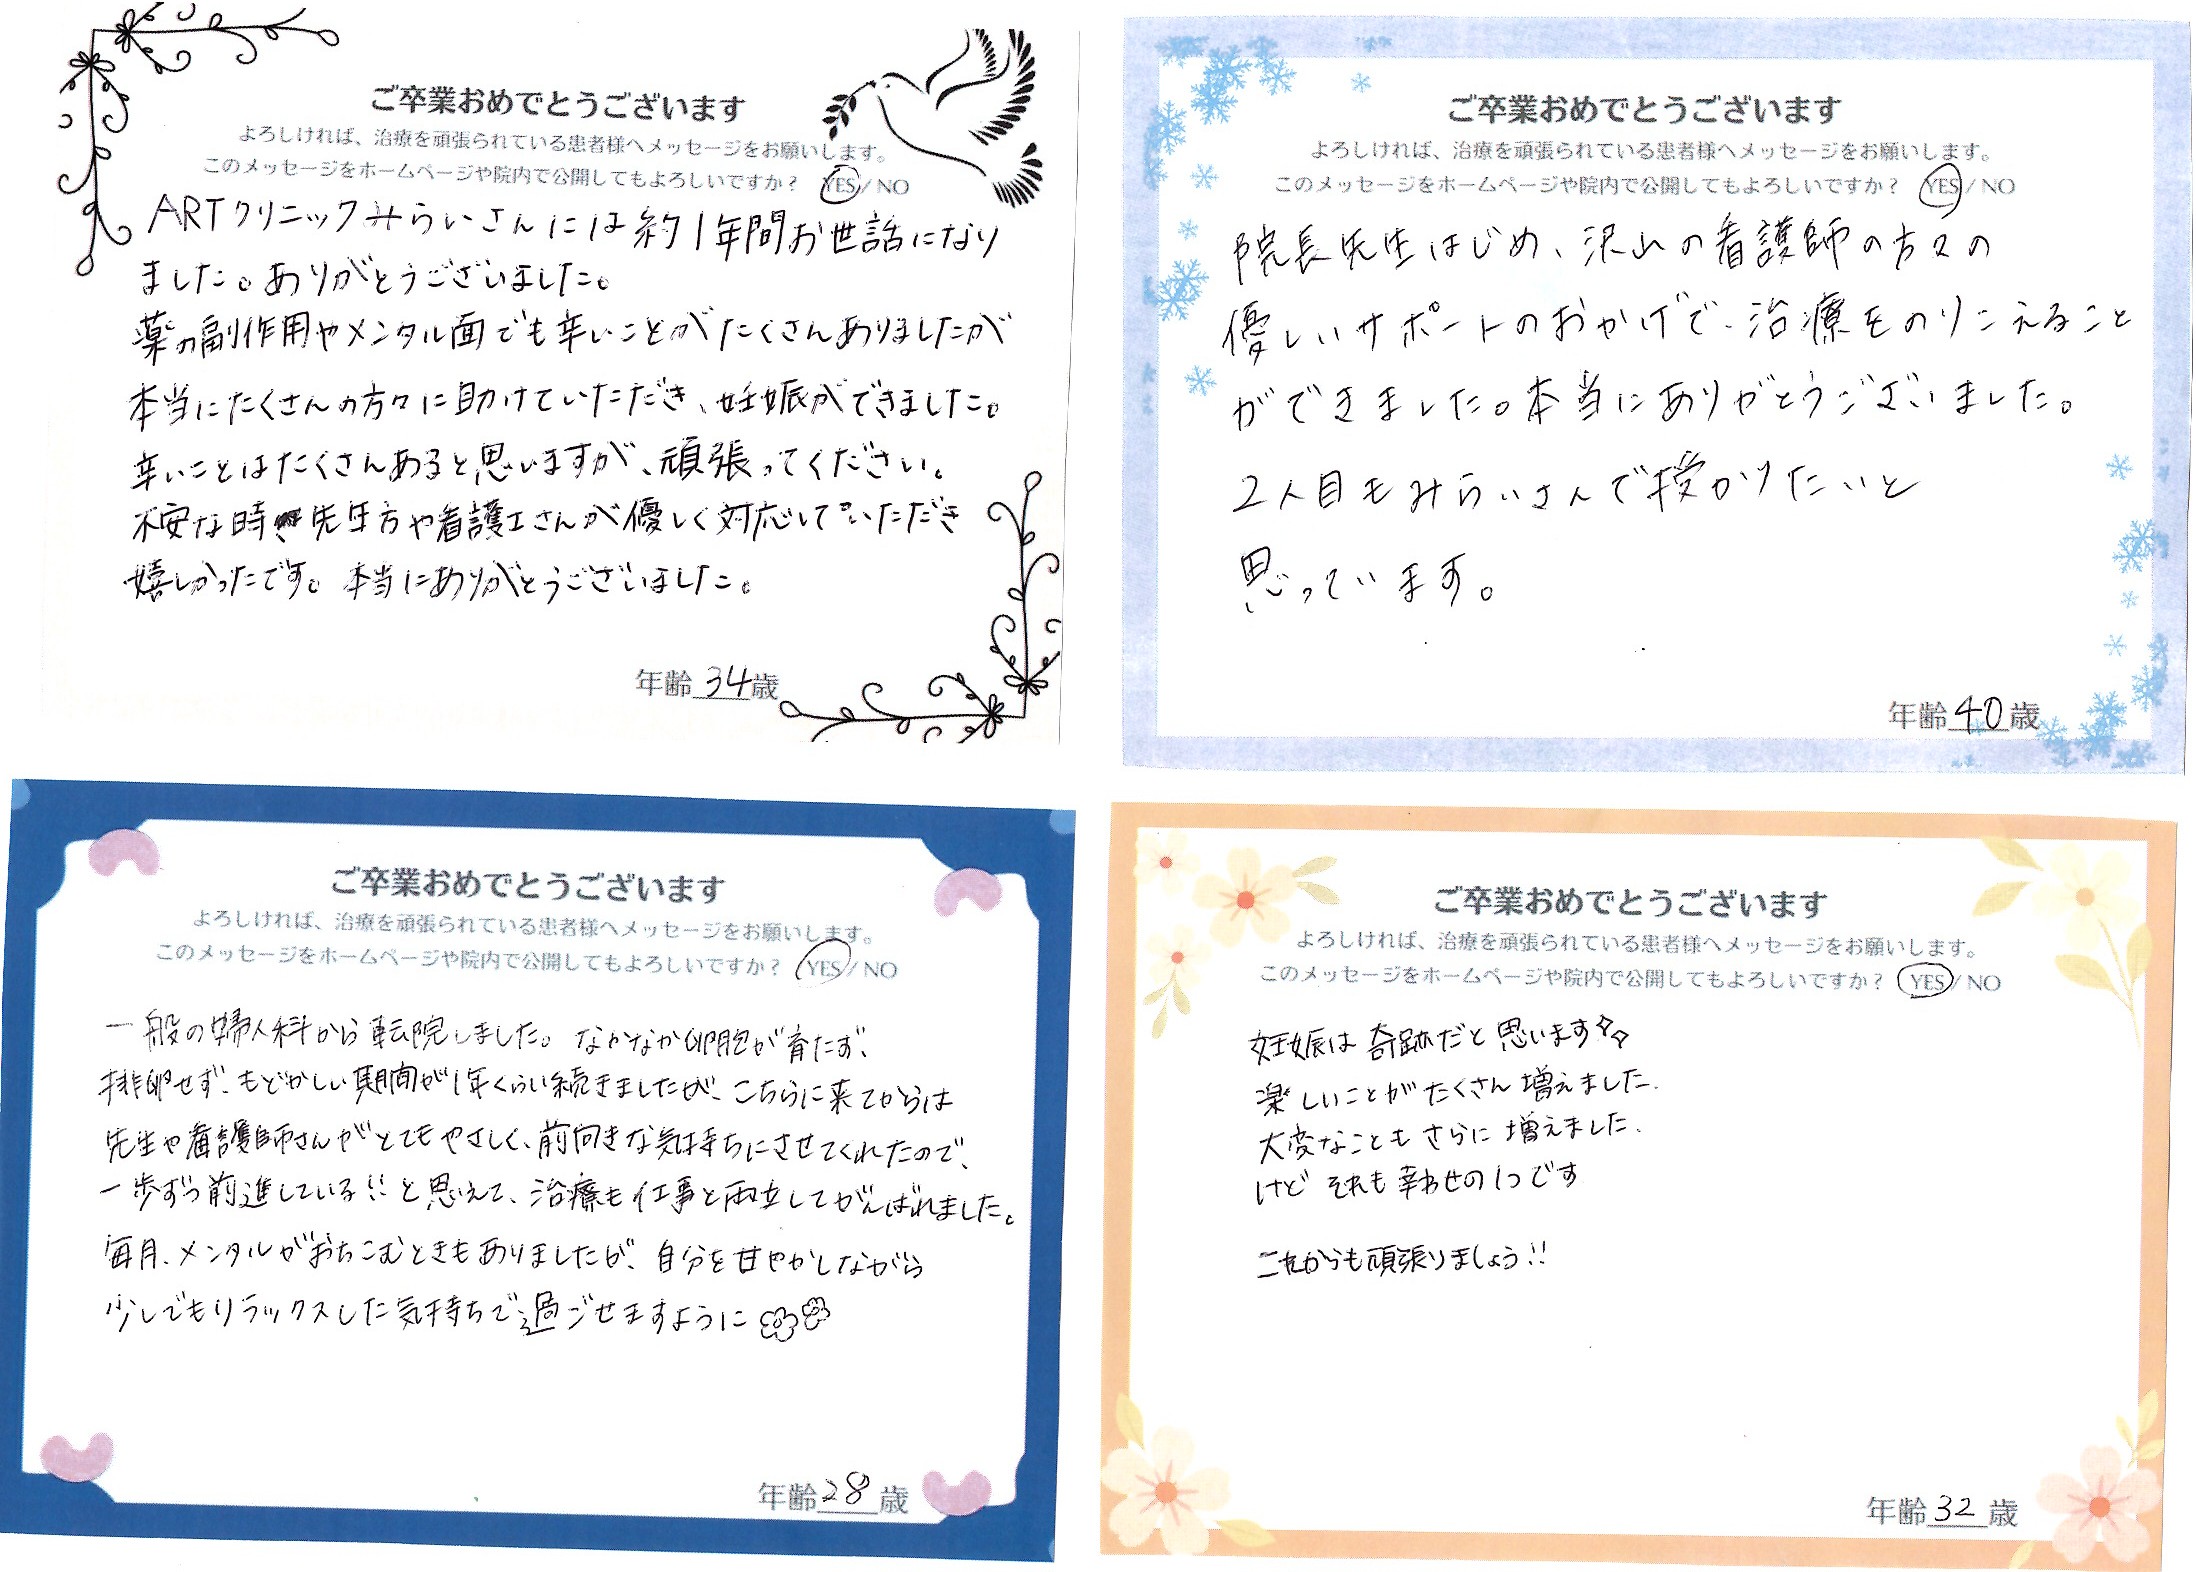 ご卒業おめでとうございます
よろしければ、治療を頑張られている患者様へメッセージをお願いします。
このメッセージをホームページや院内で公開してもよろしいですか? YES / NO
ARTクリニックみらいさんには約1年間お世話になり
ました。ありがとうございました。
薬の副作用やメンタル面でも辛いことがたくさんありましたが
本当にたくさんの方々に助けていただき、妊娠ができました。
辛いことはたくさんあると思いますが、頑張ってください。
不安な時、先生方や看護士さんが優しく対応していただき
嬉しかったです。本当にありがとうございました。
年齢 34 歳
ご卒業おめでとうございます
よろしければ、治療を頑張られている患者様へメッセージをお願いします。
このメッセージをホームページや院内で公開してもよろしいですか? YES / NO
院長先生はじめ、沢山の看護師の方々の
優しいサポートのおかげで、治療をのりこえること
ができました。本当にありがとうございました。
2人目もみらいさんで授かりたいと
思っています。
年齢 40 歳
ご卒業おめでとうございます
よろしければ、治療を頑張られている患者様へメッセージをお願いします。
このメッセージをホームページや院内で公開してもよろしいですか? YES / NO
一般の婦人科から転院しました。なかなか卵胞が育たず、
排卵せず、もどかしい期間が1年くらい続きましたが、こちらに来てからは
先生や看護師さんがとてもやさしく、前向きな気持ちにさせてくれたので、
一歩ずつ前進している!!と思えて、治療も仕事と両立してがんばれました。
毎月、メンタルがおちこむときもありましたが、自分を甘やかしながら
少しでもリラックスした気持ちで過ごせますように
年齢 28 歳
ご卒業おめでとうございます
よろしければ、治療を頑張られている患者様へメッセージをお願いします。
このメッセージをホームページや院内で公開してもよろしいですか? YES / NO
妊娠は奇跡だと思います
楽しいことがたくさん増えました.
大変なこともさらに増えました.
けど それも幸わせの1つです
これからも頑張りましょう!!
年齢 32 歳